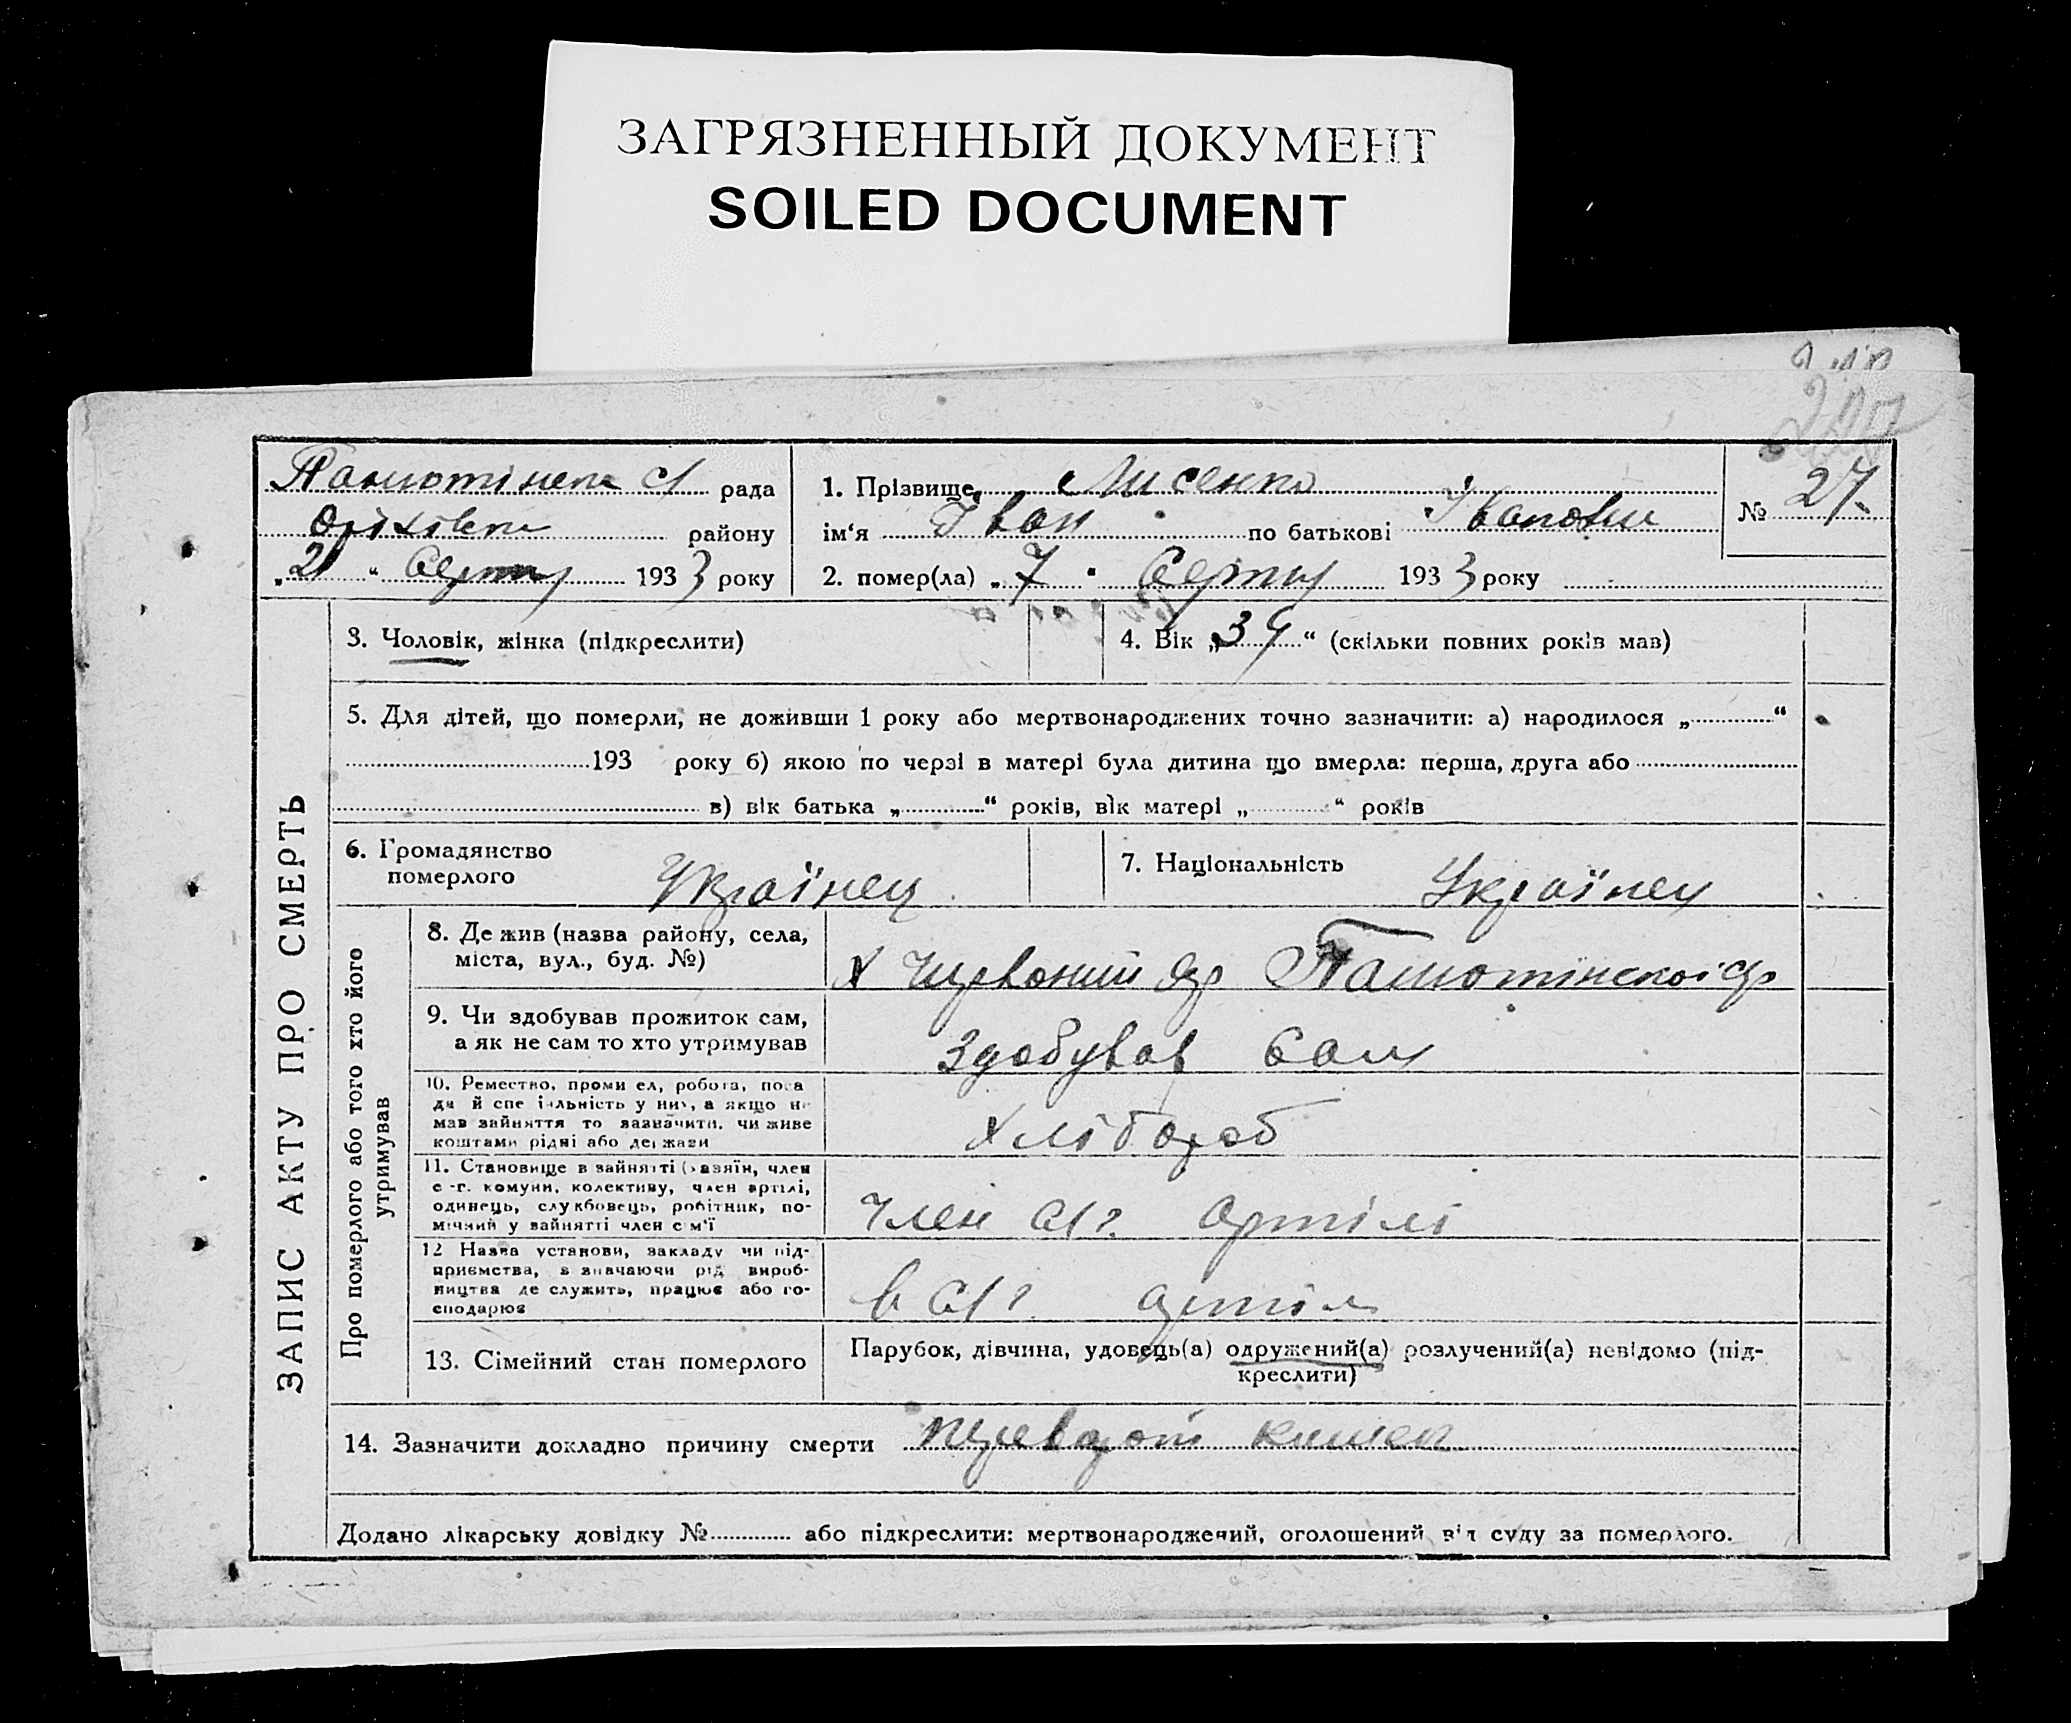 ЗАГРЯЗНЕННЫЙ ДОКУМЕНТ
SOILED DOCUMENT
рада
району
"21" Серпня 1933 року
1. Прізвище Лисенко
ім‘я Іван по батькові Іванович
2. помер(ла) „7" Серпня 1933 року
№ 27
ЗАПИС АКТУ ПРО СМЕРТЬ
3. Чоловік, жінка (підкреслити)
4. Вік „34“ (скільки повних років мав)
5. Для дітей, що померли, не доживши 1 року або мертвонароджених точно зазначити: а) народилося „ “
193 року б) якою по черзі в матері була дитина що вмерла: перша, друга або
в) вік батька „ “ років, вік матері „ “ років
6. Громадянство
померлого
Українец
7. Національність Українец
Про померлого або того хто його
утримував
8. Де жив (назва району, села,
міста, вул., буд. №)
х Червоний Яр
9. Чи здобував прожиток сам,
а як не сам то хто утримував
Здобував сам
10. Ремество, промисел, робота, поса
да й спеціяльність у них, а якщо не
мав зайняття то зазначити, чи живе
коштами рідні або держави
Хлібороб
11. Становище в зайнятті (хазяїн, член
с.-г. комуни, колективу, член артілі,
одинець, службовець, робітник, по-
мічний у зайнятті член сім'ї
Член с/г. артілі
12 Назва установи, закладу чи під-
приємства, зазначаючи рід вироб-
ництва де служить, працює або го-
сподарює
в с/г. артілі
13. Сімейний стан померлого
Парубок, дівчина, удовець(а) одружений(а) розлучений(а) невідомо (під-
креслити)
14. Зазначити докладно причину смерти переворот кишек
Додано лікарську довідку № або підкреслити: мертвонароджений, оголошений від суду за померлого.